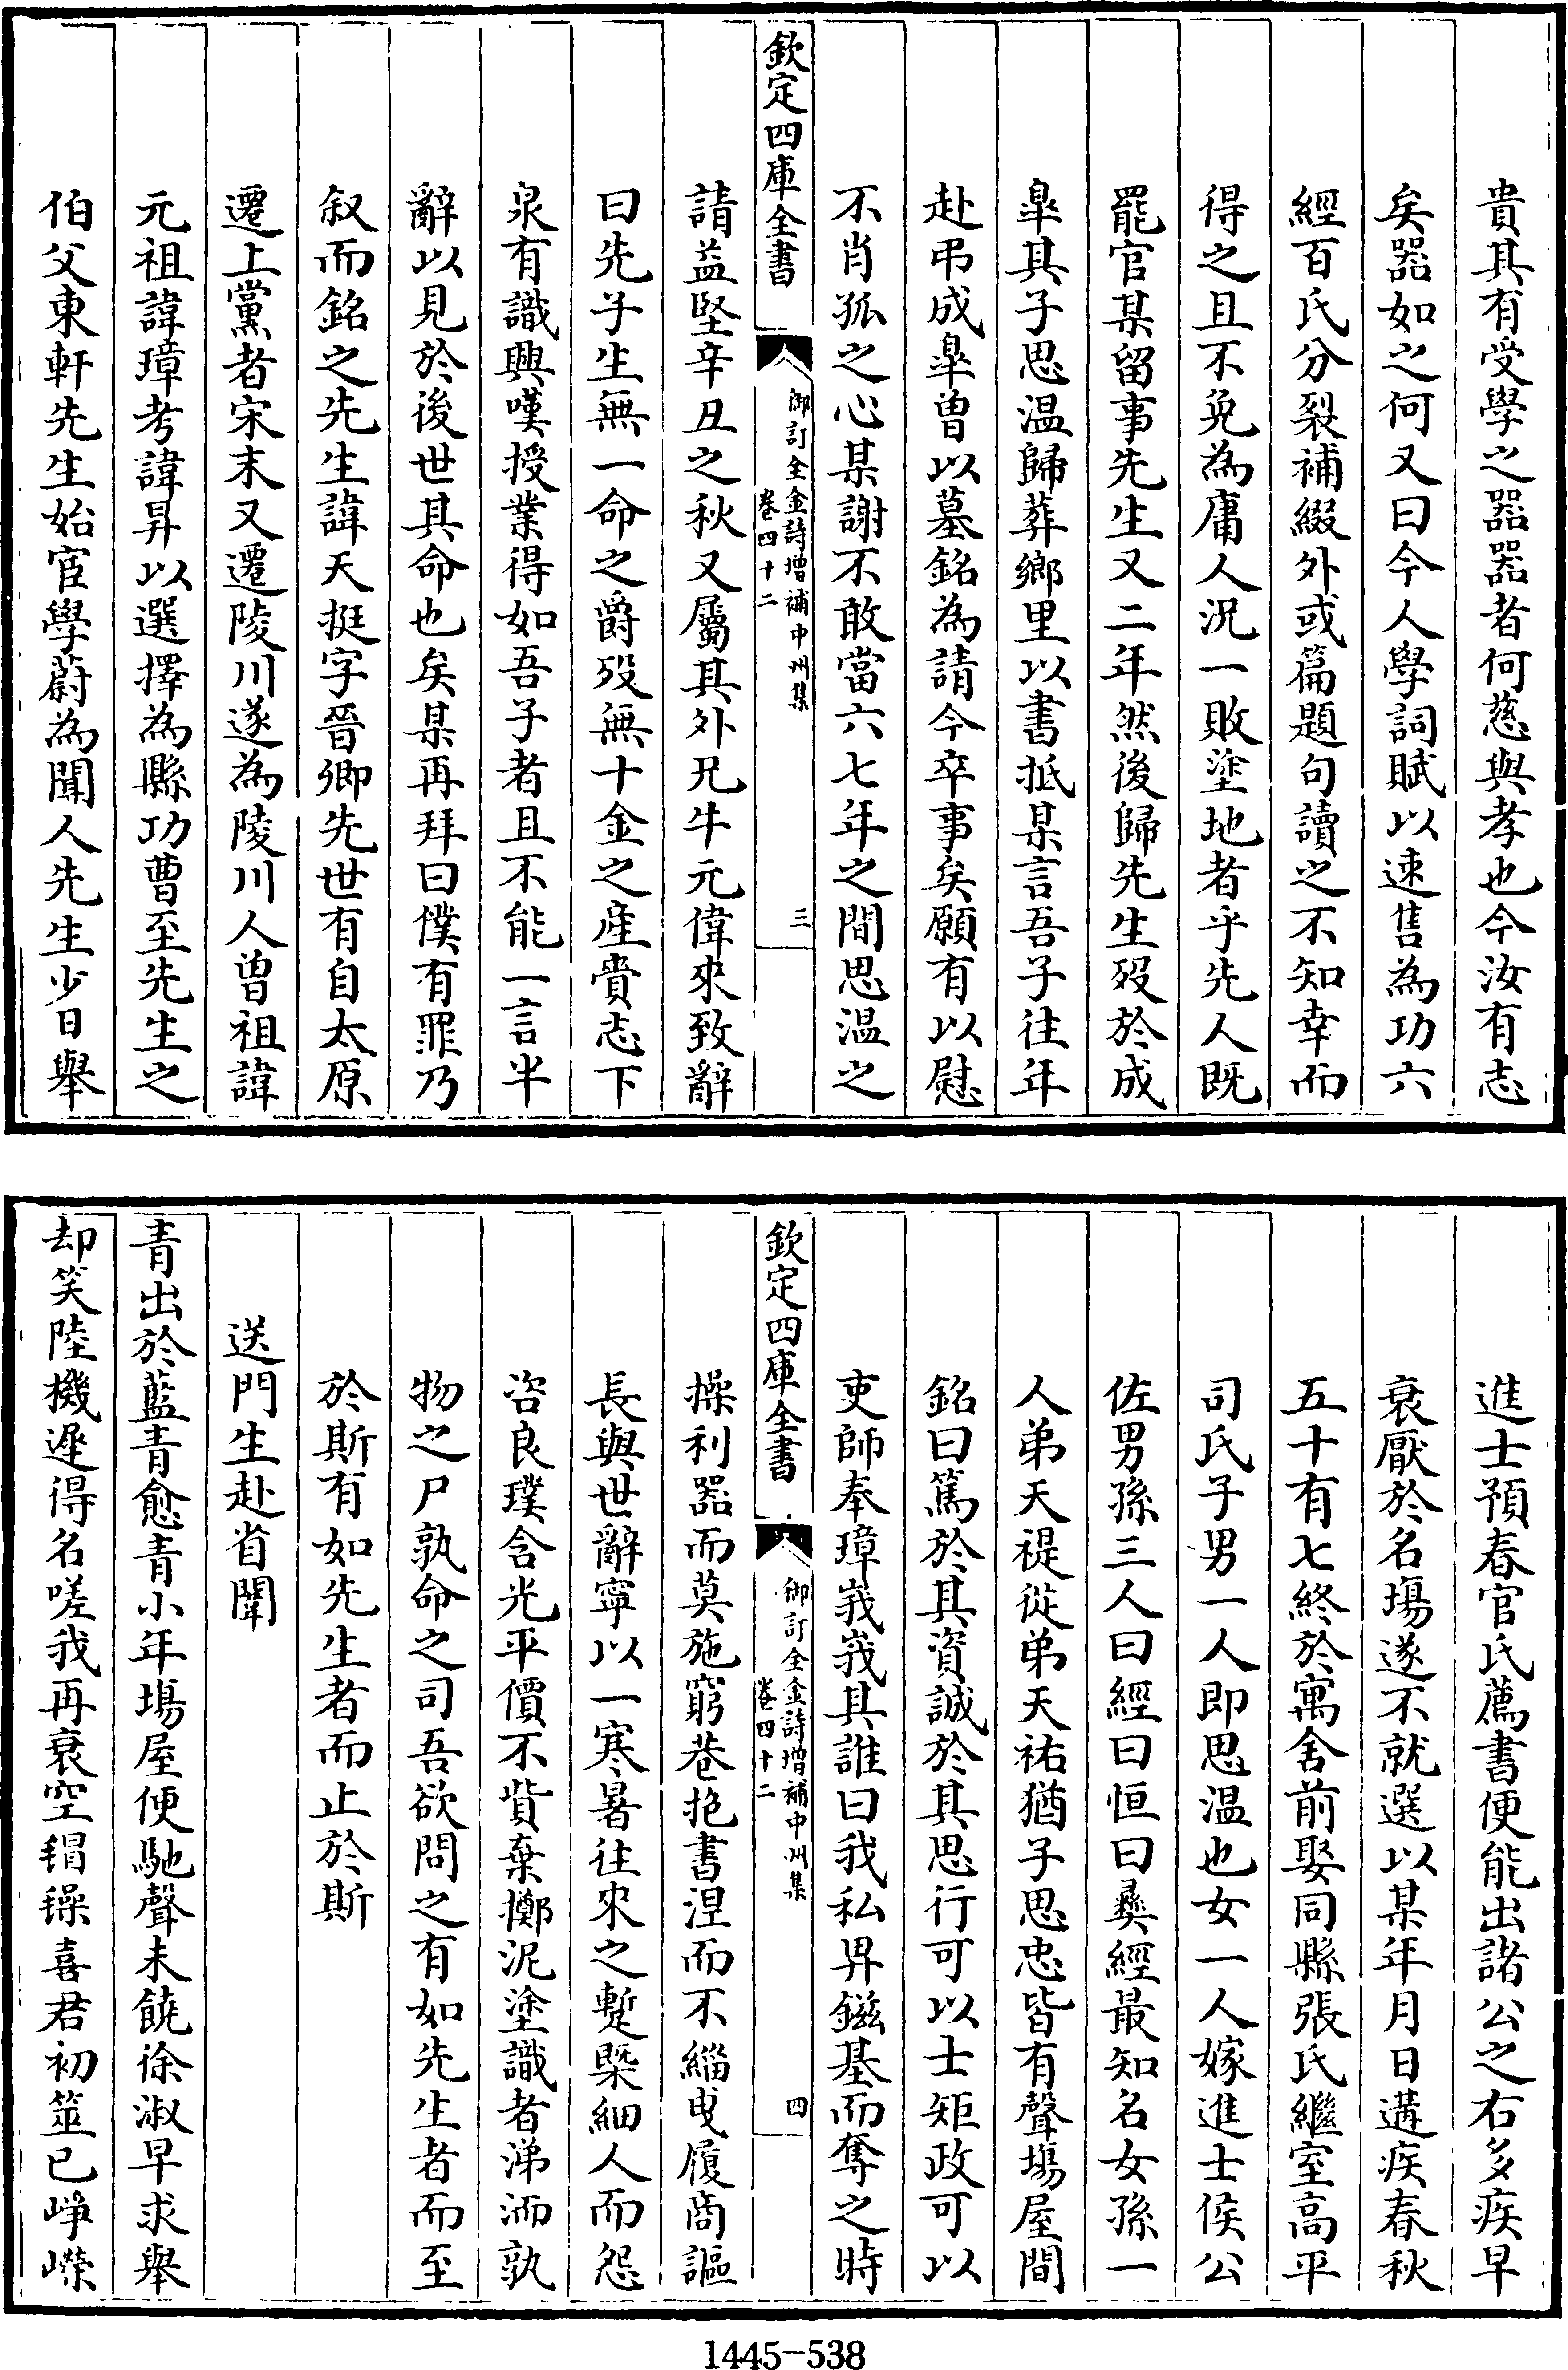 貴其有受學之器器者何慈與孝也今汝有志
矣器如之何又曰今人學詞賦以速售為功六
經百氏分裂補綴外或篇題句讀之不知幸而
得之且不免為庸人況一敗塗地者乎先人既
罷官某留事先生又二年然後歸先生歿於成
臯其子思温歸葬鄉里以書抵某言吾子往年
赴弔成臯曽以墓銘為請今卒事矣願有以慰
不肖孤之心某謝不敢當六七年之間思温之
欽定四庫全書
御訂全金詩増補中州集
卷四十二
三
請益堅辛丑之秋又屬其外兄牛元偉來致辭
曰先子生無一命之爵歿無十金之産賫志下
泉有識興嘆授業得如吾子者且不能一言半
辭以見於後世其命也矣某再拜曰僕有罪乃
叙而銘之先生諱天挺字晉卿先世有自太原
遷上黨者宋末又遷陵川遂為陵川人曽祖諱
元祖諱璋考諱昇以選擇為縣功曹至先生之
伯父東軒先生始宦學蔚為聞人先生少日舉
進士預春官氏薦書便能出諸公之右多疾早
衰厭於名場遂不就選以某年月日遘疾春秋
五十有七終於寓舍前娶同縣張氏繼室高平
司氏子男一人即思温也女一人嫁進士侯公
佐男孫三人曰經曰恒曰彛經最知名女孫一
人弟天禔從弟天祐猶子思忠皆有聲場屋間
銘曰篤於其資誠於其思行可以士矩政可以
吏師奉璋峩峩其誰曰我私畀鎡基而奪之時
欽定四庫全書
御訂全金詩増補中州集
卷四十二
四
操利器而莫施窮巷抱書涅而不緇曵履商謳
長與世辭寧以一寒暑往來之蹔槩細人而怨
咨良璞含光平價不貲棄擲泥塗識者涕洏孰
物之尸孰命之司吾欲問之有如先生者而至
於斯有如先生者而止於斯
送門生赴省闈
青出於藍青愈青小年場屋便馳聲未饒徐淑早求舉
却笑陸機遲得名嗟我再衰空𦒿𦒿喜君初筮已崢嶸
1445-538